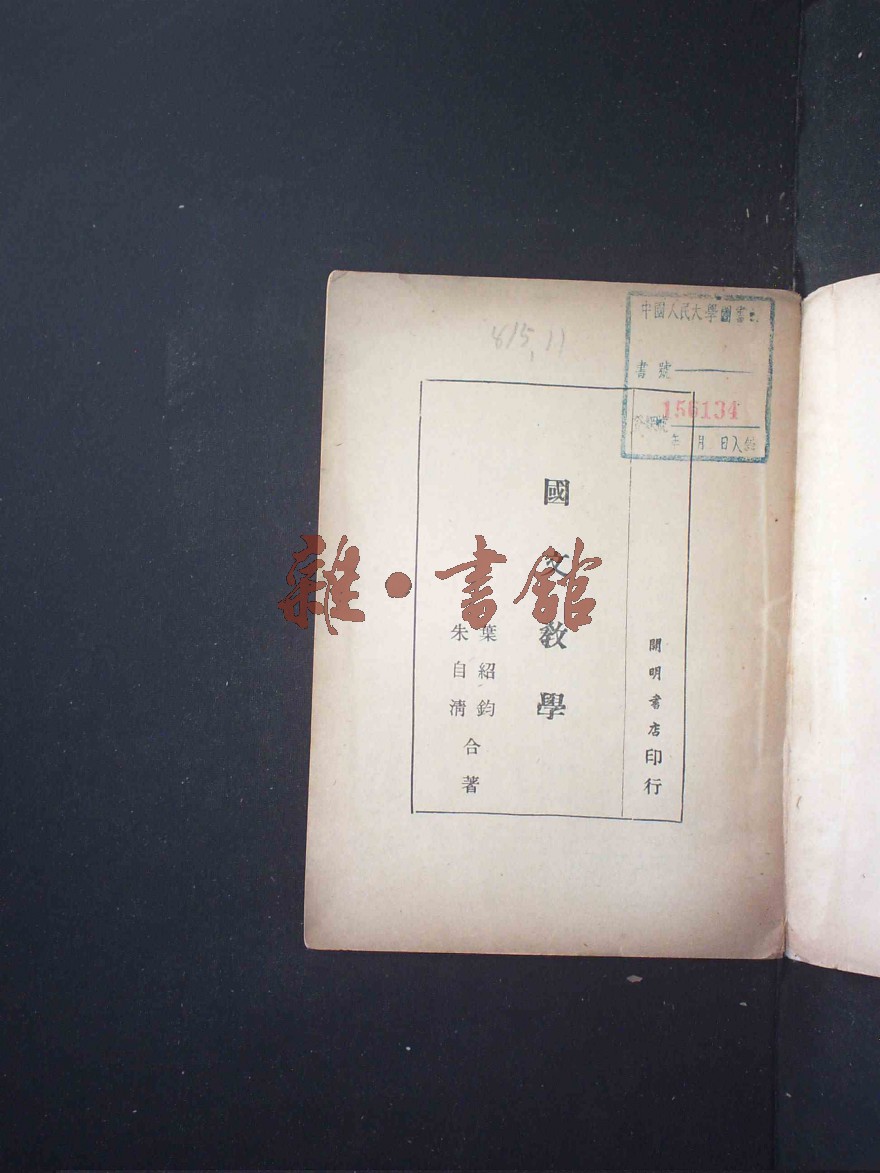 815.11
中國人民大學圖書
書號
156134
年 月 日入館
開明書店印行
國文教學
葉紹鈞
朱自清
合著
雜·書館